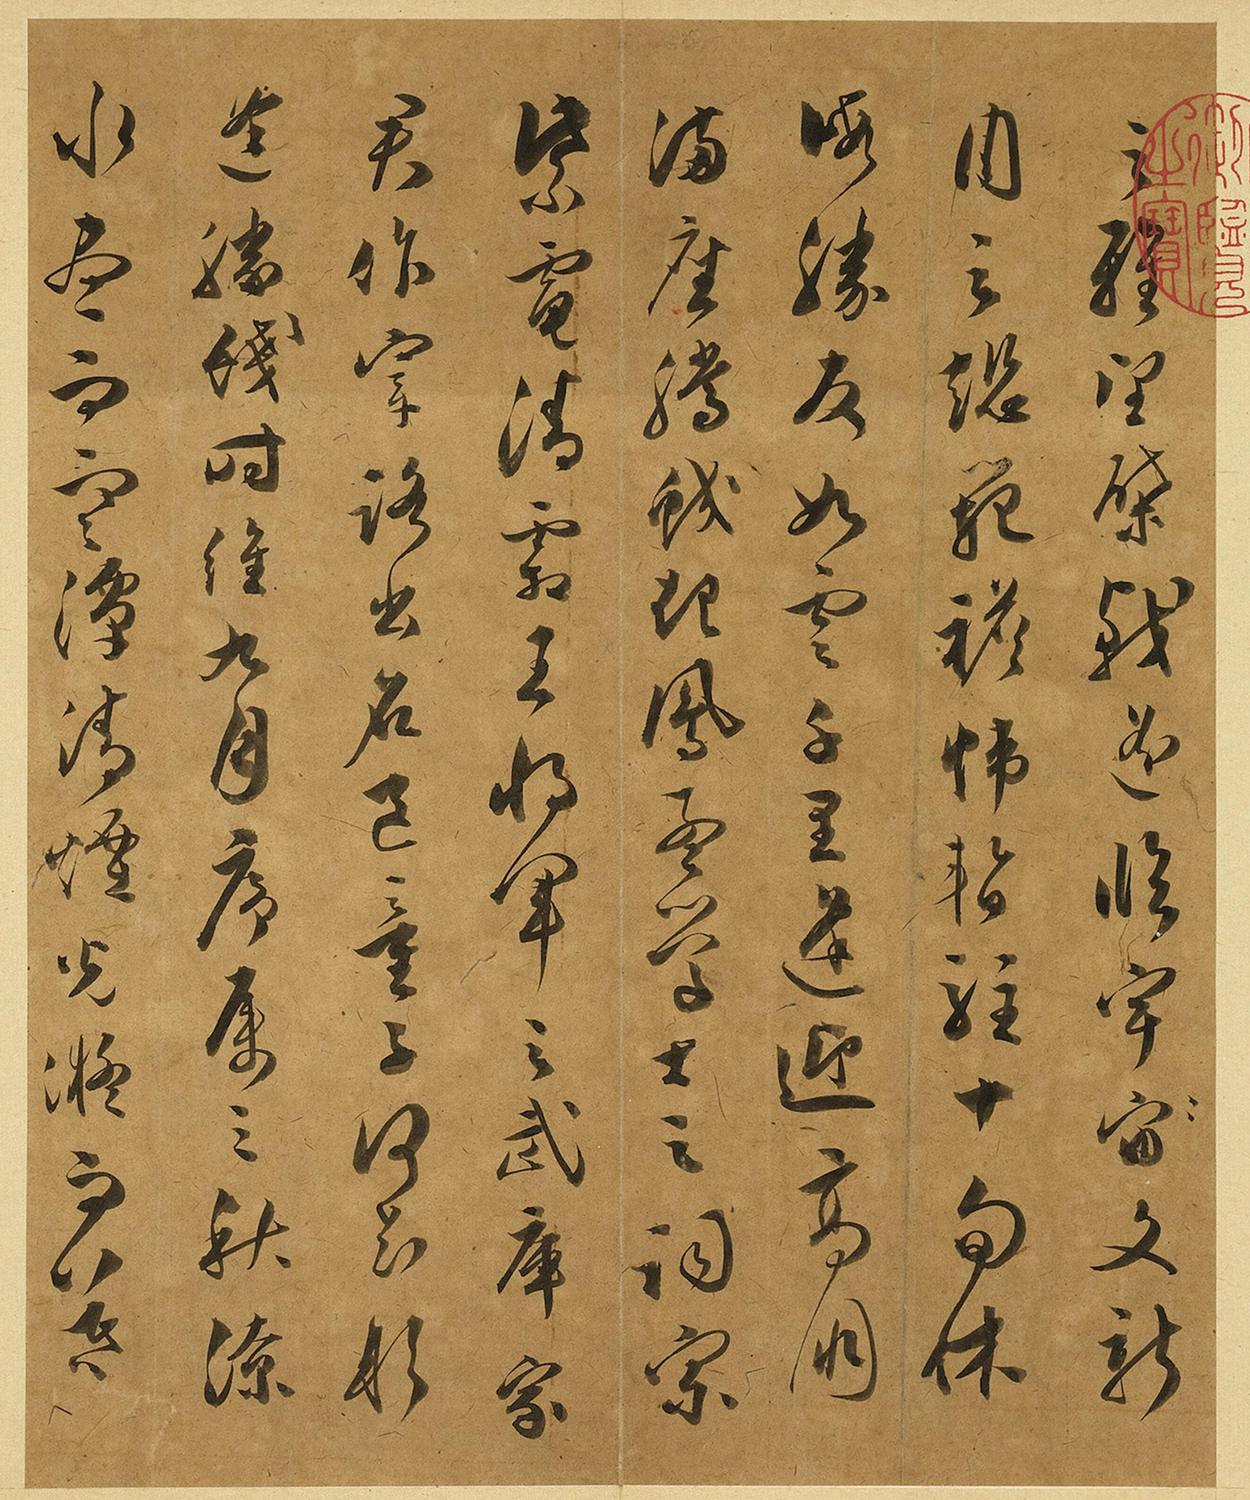 之雅望棨戟遥臨宇宙文新
州之懿範襜帷暫駐十旬休
暇勝友如雲千里逢迎高朋
滿座騰蛟起鳳孟學士之詞宗
紫電清霜王將軍之武庫家
君作宰路出名區童子何知躬
逢勝餞時維九月序屬三秋潦
水盡而寒潭清煙光凝而暮
御覽之寶